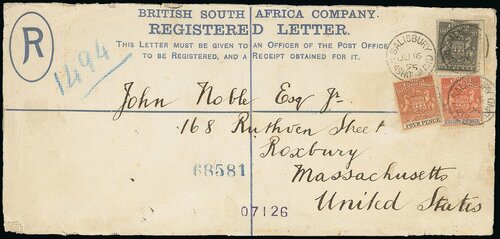 BRITISH SOUTH AFRICA COMPANY.
REGISTERED LETTER.
THIS LETTER MUST BE GIVEN TO AN OFFICER OF THE POST OFFICE
TO BE REGISTERED, AND A RECEIPT OBTAINED FOR IT.
R
1494
SALISBURY
JU 16
95
FOUR PENCE
John Noble Esq Jr.
168 Ruthven Street
Roxbury
68581
Massachusetts
07126
United States